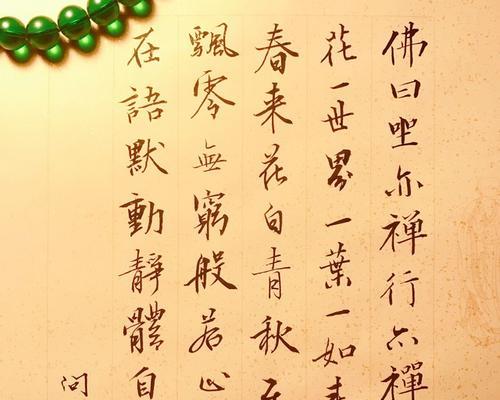 佛曰坐亦禪行亦禪
花一世界一葉一如
春来花自青秋
飄零無窮般若心
在語默動靜體自
問